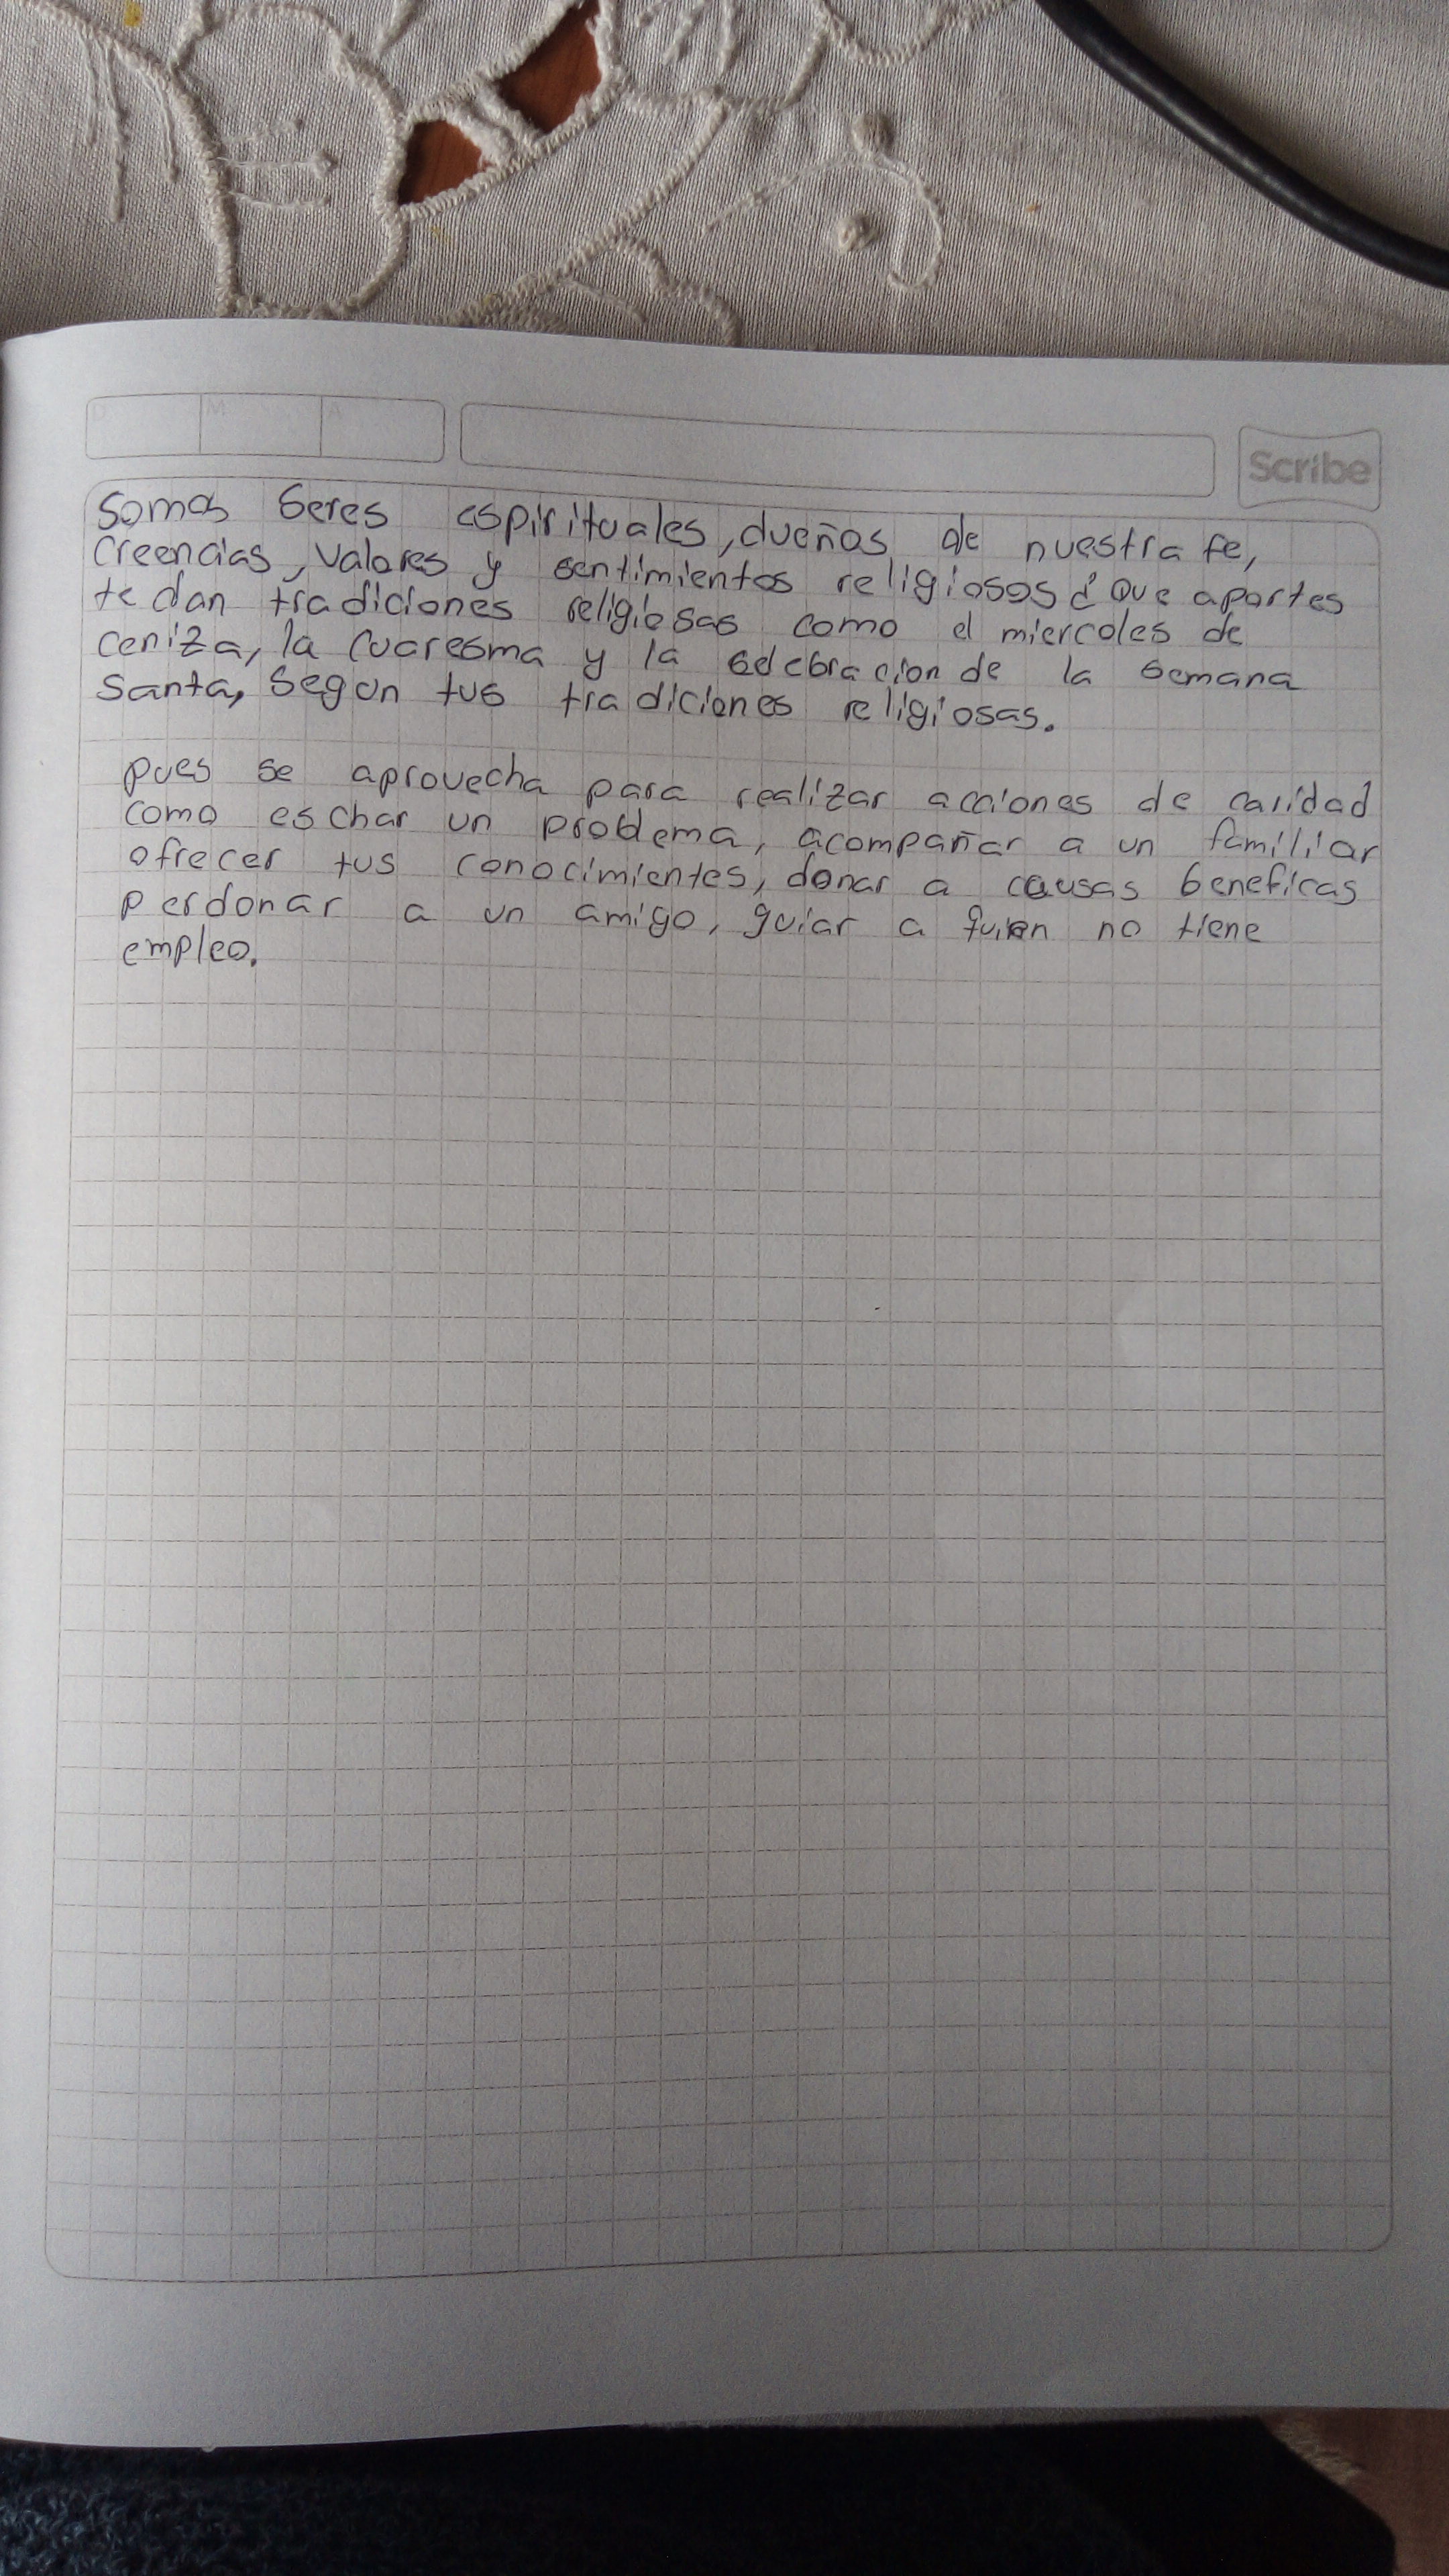 D M A
Scribe
Somos Seres espirituales, dueños de nuestra fe,
Creencias, valores y sentimientos religiosos ¿ Que aportes
te dan tradiciones religiosas como el miercoles de
ceniza, la cuaresma y la celebracion de la semana
Santa, Segun tus tradiciones religiosas.
pues se aprovecha para realizar acciones de caridad
como eschar un problema, acompañar a un familiar
ofrecer tus conocimientes, donar a causas beneficas
perdonar a un amigo, guiar a quien no tiene
empleo.